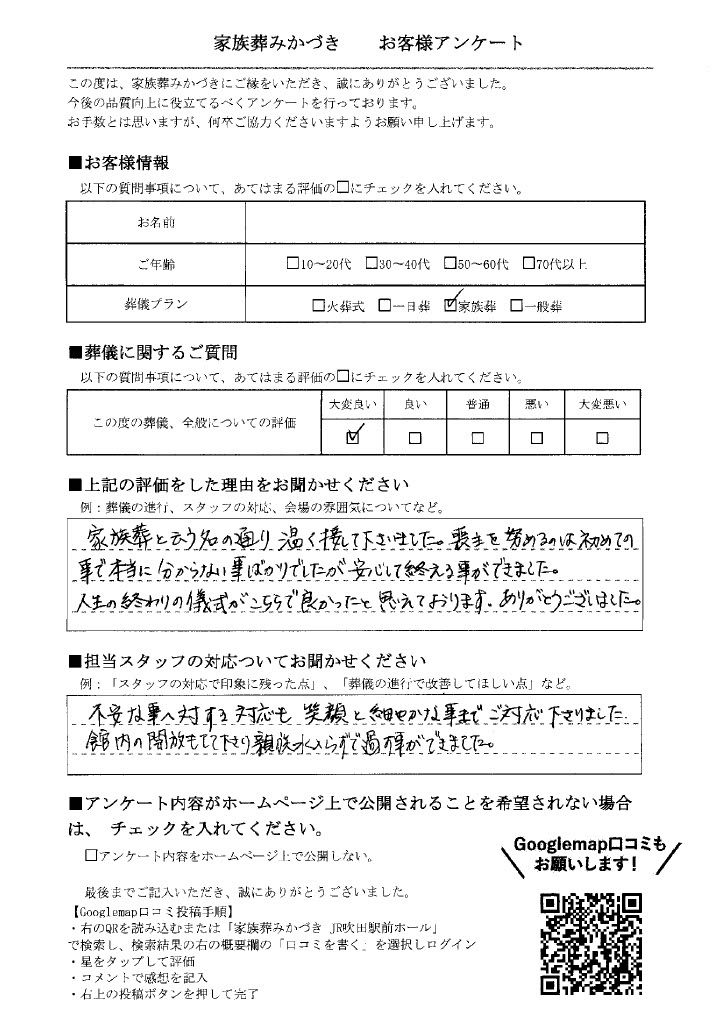 家族葬みかづき　　お客様アンケート
この度は、家族葬みかづきにご縁をいただき、誠にありがとうございました。
今後の品質向上に役立てるべくアンケートを行っております。
お手数とは思いますが、何卒ご協力くださいますようお願い申し上げます。
■お客様情報
以下の質問事項について、あてはまる評価の□にチェックを入れてください。
お名前
ご年齢　□10～20代　□30～40代　□50～60代　□70代以上
葬儀プラン　□火葬式　□一日葬　☑家族葬　□一般葬
■葬儀に関するご質問
以下の質問事項について、あてはまる評価の□にチェックを入れてください。
大変良い　良い　普通　悪い　大変悪い
この度の葬儀、全般についての評価　☑　□　□　□　□
■上記の評価をした理由をお聞かせください
例：葬儀の進行、スタッフの対応、会場の雰囲気についてなど。
家族葬と云う名の通り温く接して下さいました。喪主を努めるのは初めての
事で本当に分からない事ばかりでしたが安心して終える事ができました。
人生の終わりの儀式がこちらで良かったと思えております。ありがとうございました。
■担当スタッフの対応ついてお聞かせください
例：「スタッフの対応で印象に残った点」、「葬儀の進行で改善してほしい点」など。
不安な事へ対する対応も笑顔と細やかな事までご対応下さりました
館内の開放もして下さり親族水入らずで過す事ができました。
■アンケート内容がホームページ上で公開されることを希望されない場合
は、 チェックを入れてください。
□アンケート内容をホームページ上で公開しない。
Googlemap口コミも
お願いします!
最後までご記入いただき、誠にありがとうございました。
【Googlemap口コミ投稿手順】
・右のQRを読み込むまたは「家族葬みかづき JR吹田駅前ホール」
で検索し、検索結果の右の概要欄の「口コミを書く」を選択しログイン
・星をタップして評価
・コメントで感想を記入
・右上の投稿ボタンを押して完了